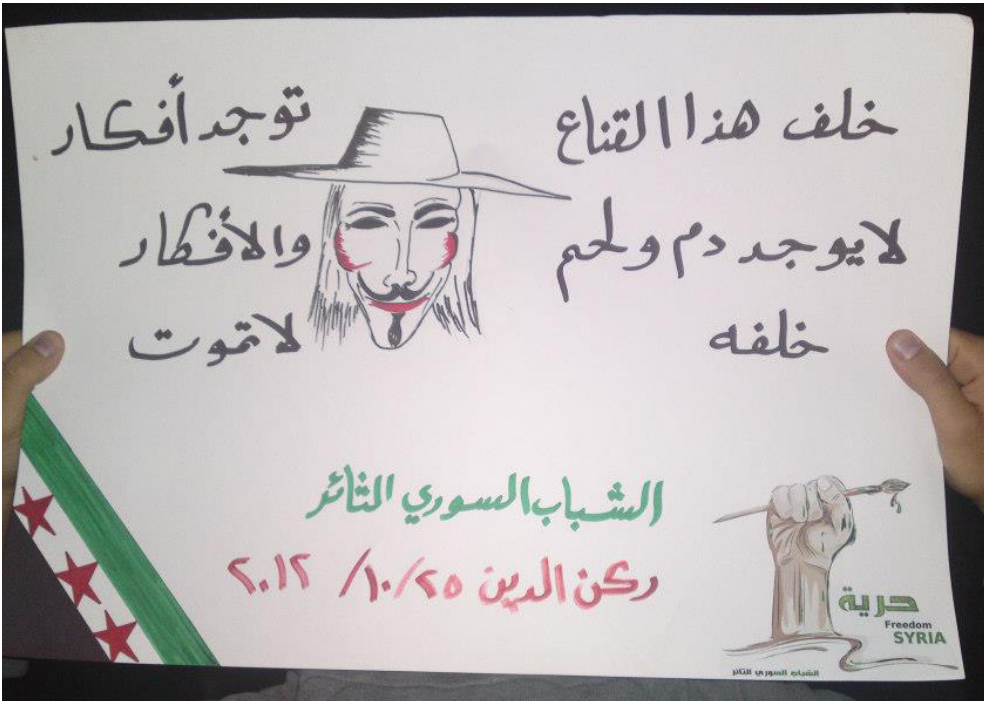 خلف هذا القناع
لا يوجد دم ولحم
خلفه
توجد أفكار
والأفكار
لا تموت
الشباب السوري الثائر
ركن الدين ٢٥/١٠/ ٢٠١٢
حرية
Freedom
SYRIA
الشباب السوري الثائر